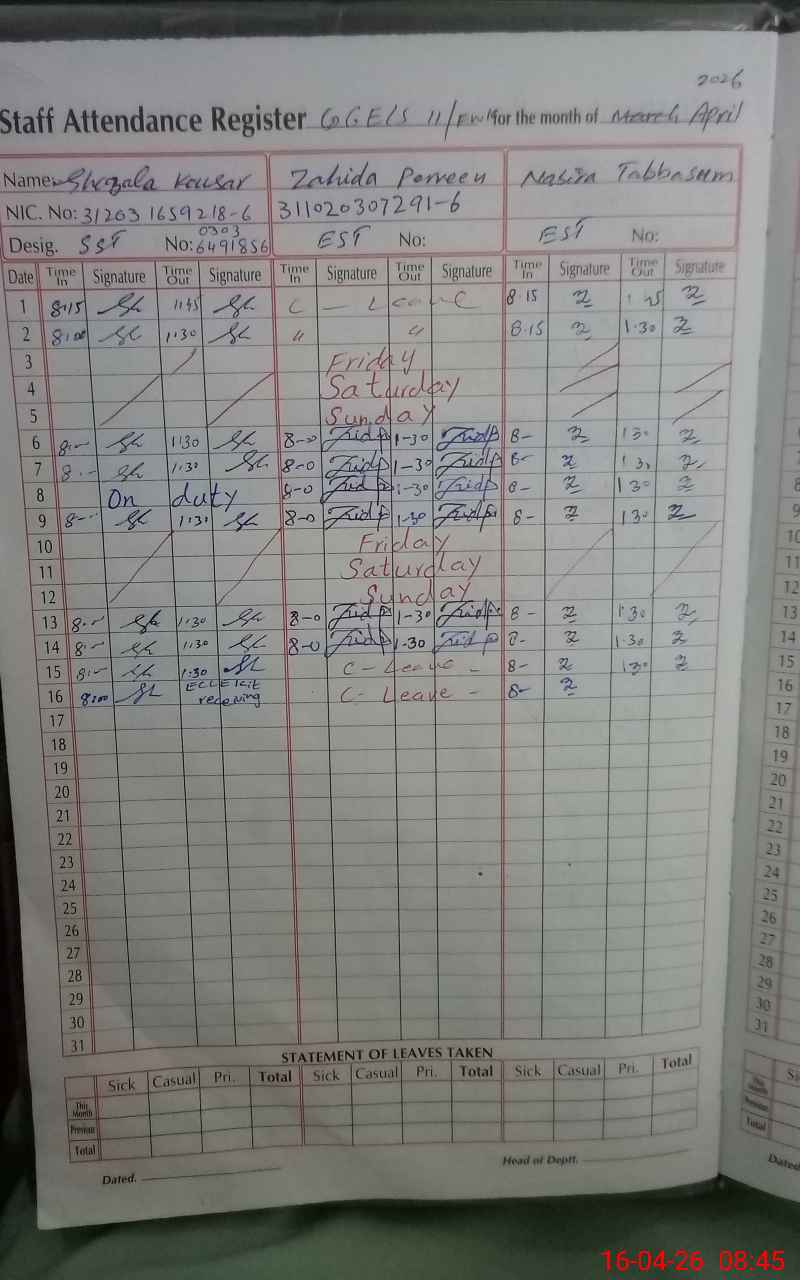 2026
Staff Attendance Register GGELS 11/FW for the month of March April
Name Shazala Kousar Zahida Parveen Nasira Tabbasum
NIC. No: 31203 1659218-6 311020307291-6
0303
Desig. SST No: 6491856 EST No: EST No:
Date Time In Signature Time Out Signature Time In Signature Time Out Signature Time In Signature Time Out Signature
1 8:15 Sh 1:45 Sh C - Leave 8.15 1 45
2 8:00 Sh 1:30 Sh " " 8.15 1.30
3 Friday
4 Saturday
5 Sunday
6 8:- Sh 1:30 Sh 8-0 1-30 8- 1 30
7 8:- Sh 1:30 Sh 8-0 1-30 8- 1 30
8 On duty 8-0 1-30 8- 1 30
9 8-- Sh 1:30 Sh 8-0 1-30 8- 1 30
10 Friday
11 Saturday
12 Sunday
13 8:- Sh 1:30 Sh 8-0 1-30 8- 1 30
14 8:- Sh 1:30 Sh 8-0 1-30 8- 1.30
15 8:- Sh 1:30 Sh C - Leave - 8- 1 30
16 8:00 Sh ECLE kit receiving C - Leave - 8-
17
18
19
20
21
22
23
24
25
26
27
28
29
30
31
STATEMENT OF LEAVES TAKEN
Sick Casual Pri. Total Sick Casual Pri. Total Sick Casual Pri. Total
This Month
Previous
Total
Dated. Head of Deptt.
10
11
12
13
14
15
16
17
18
19
20
21
22
23
24
25
26
27
28
29
30
31
This Month
Previous
Total
Dated
16-04-26 08:45